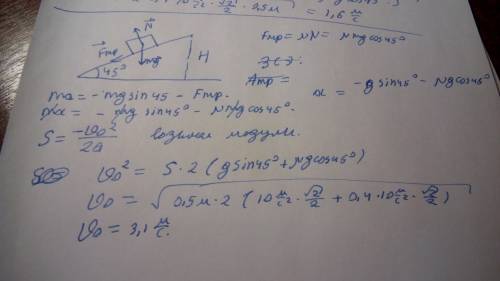 10 м/с² · √2/2 · 0,5м = 1,6 м/с
N⃗
F⃗тр
mg⃗
H
45°
Fтр = μN = μmgcos45°
ЗСЭ
Aтр =
ma = - mgsin45 - Fтр.
a = -gsin45° - μgcos45°
ma = - mg sin45° - μmgcos45°.
S = -υ0²/2a возьмём модули.
υ0² = S·2(gsin45° + μgcos45°)
υ0 = √(0,5м·2(10 м/с²·√2/2 + 0,4·10 м/с²·√2/2))
υ0 = 3,1 м/с.